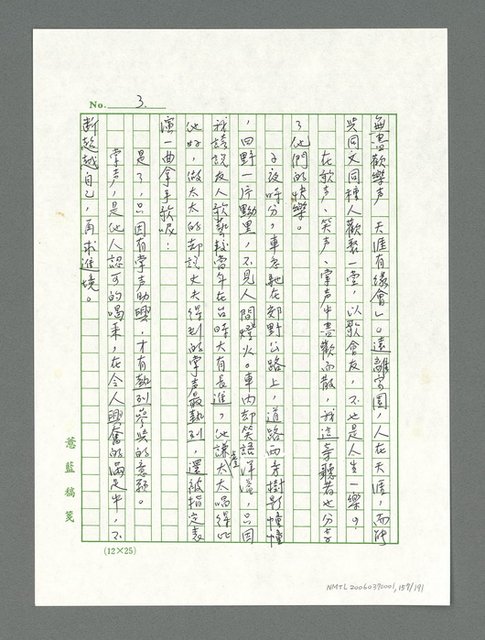 No. 3.
無盡歡樂声 天涯有緣會」。遠離家園,人在天涯,而能
與同文同種人歡聚一堂,以歌會友,不也是人生一樂?
在歌声、笑声、掌声中盡歡而散,我這旁聽者也分享
了他們的快樂。
子夜時分,車急馳在郊野公路上,道路兩旁樹影幢幢
,田野一片黝黑,不見人間燈火。車內卻笑語洋溢,只因
我誇說友人歌藝較當年在台時大有長進,他謙太太唱得比
他好,做太太的卻說丈夫得到的掌声最熱烈,還被指定表
演一曲拿手歌呢!
是了,只因有掌声助興,才有熱烈參與的意願。
掌声,是他人認可的喝采,在令人興奮的滿足中,不
斷超越自己,再求進境。
薏藍稿箋
(12×25)
NMTL20060390001,157/191